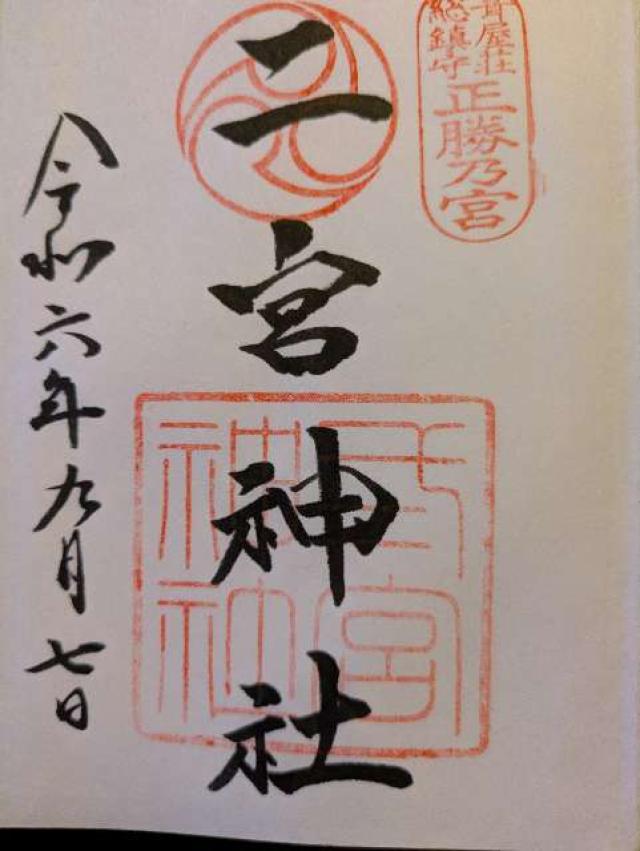 葺屋荘
総鎮守
正勝乃宮
二宮神社
令和六年九月七日